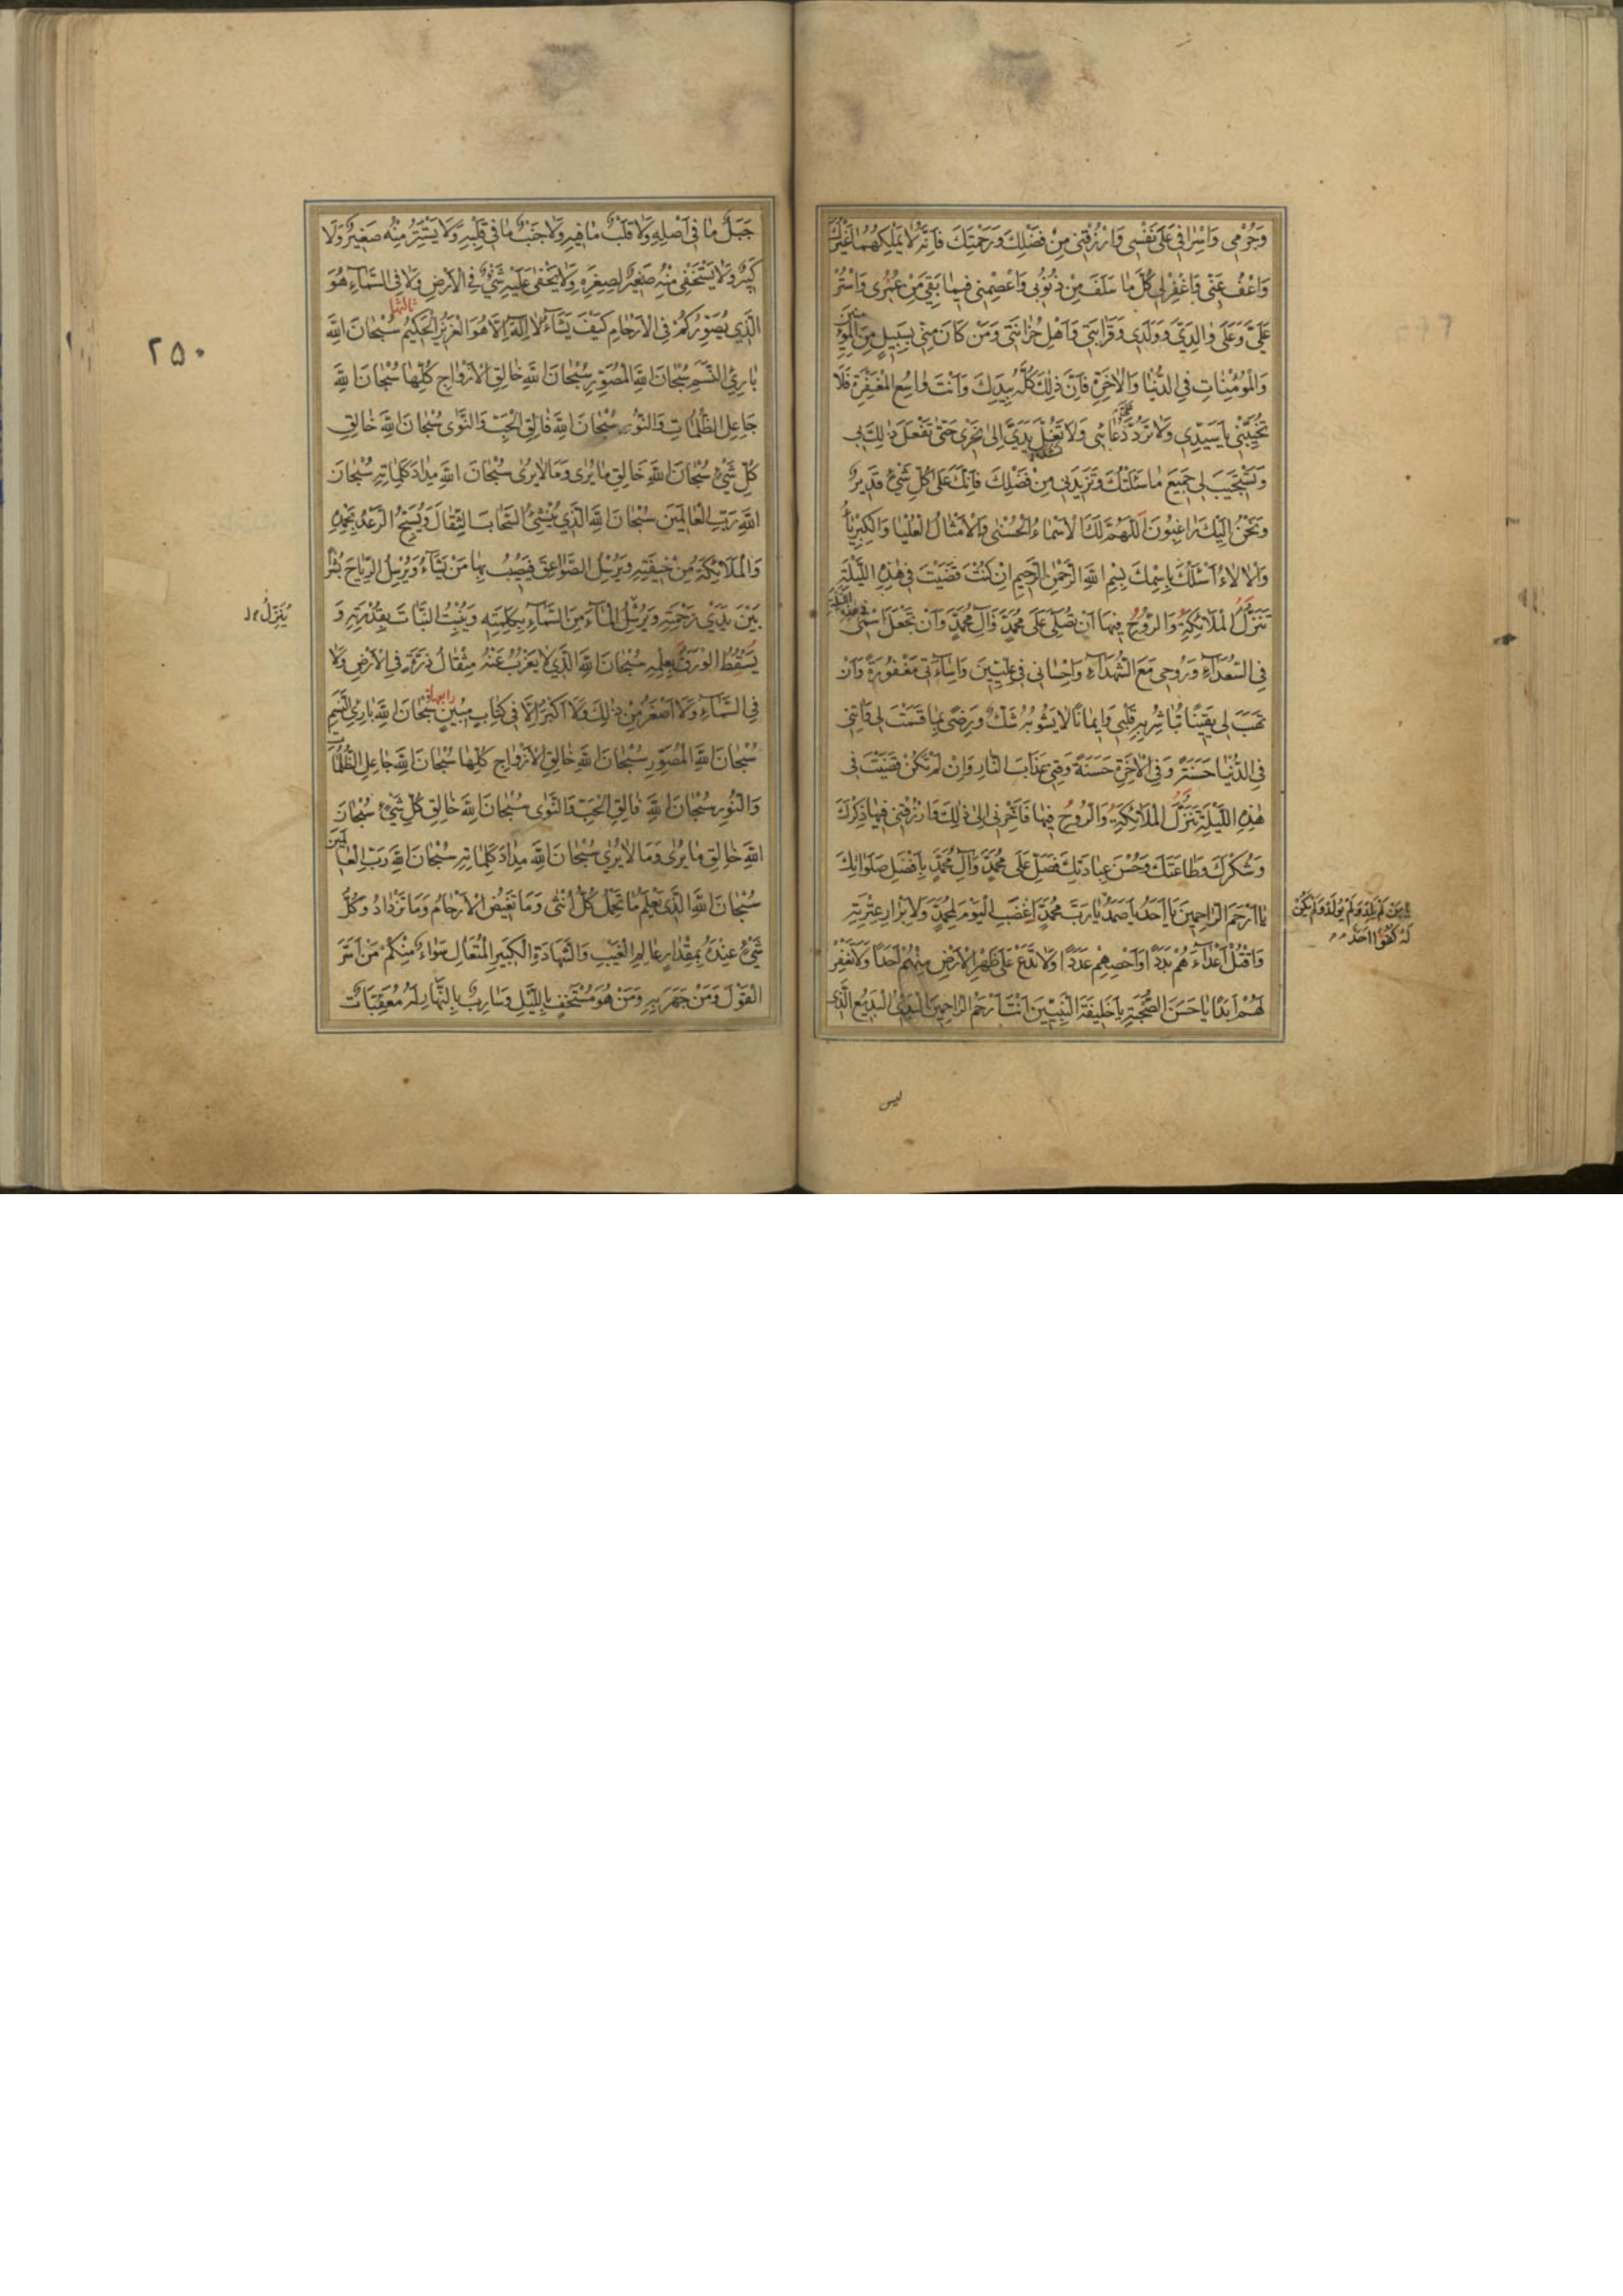 وَجُرْمِي وَاِسْرَافِي عَلَىٰ نَفْسِي وَارْزُقْنِي مِنْ فَضْلِكَ وَرَحْمَتِكَ فَاِنَّهُ لَا يَمْلِكُهُمَا غَيْرُكَ
وَاعْفُ عَنِّي وَاغْفِرْ لِي كُلَّ مَا سَلَفَ مِنْ ذُنُوبِي وَاعْصِمْنِي فِيمَا بَقِيَ مِنْ عُمُرِي وَاسْتُرْ
عَلَيَّ وَعَلَىٰ وَالِدَيَّ وَوَلَدِي وَقَرَابَتِي وَاَهْلِ حُزَانَتِي وَمَنْ كَانَ مِنِّي بِسَبِيلٍ مِنَ الْمُؤْمِنِينَ
وَالْمُؤْمِنَاتِ فِي الدُّنْيَا وَالْاٰخِرَةِ فَاِنَّ ذٰلِكَ كُلَّهُ بِيَدِكَ وَاَنْتَ وَاسِعُ الْمَغْفِرَةِ فَلَا
تُخَيِّبْنِي يَا سَيِّدِي وَلَا تَرُدَّ دُعَائِي وَلَا يَدِي اِلَىٰ نَحْرِي حَتَّىٰ تَفْعَلَ ذٰلِكَ بِي
وَتَسْتَجِيبَ لِي جَمِيعَ مَا سَئَلْتُكَ وَتَزِيدَنِي مِنْ فَضْلِكَ فَاِنَّكَ عَلَىٰ كُلِّ شَيْءٍ قَدِيرٌ
وَنَحْنُ اِلَيْكَ رَاغِبُونَ اَللّٰهُمَّ لَكَ الْاَسْمَاءُ الْحُسْنَىٰ وَالْاَمْثَالُ الْعُلْيَا وَالْكِبْرِيَاءُ
وَالْاٰلَاءُ اَسْئَلُكَ بِاِسْمِكَ بِسْمِ اللّٰهِ الرَّحْمٰنِ الرَّحِيمِ اِنْ كُنْتَ قَضَيْتَ فِي هٰذِهِ اللَّيْلَةِ
تَنَزُّلَ الْمَلَائِكَةِ وَالرُّوحِ فِيهَا اَنْ تُصَلِّيَ عَلَىٰ مُحَمَّدٍ وَاٰلِ مُحَمَّدٍ وَاَنْ تَجْعَلَ اسْمِي فِي هٰذِهِ اللَّيْلَةِ
فِي السُّعَدَاءِ وَرُوحِي مَعَ الشُّهَدَاءِ وَاِحْسَانِي فِي عِلِّيِّينَ وَاِسَاءَتِي مَغْفُورَةً وَاَنْ
تَهَبَ لِي يَقِينًا تُبَاشِرُ بِهِ قَلْبِي وَاِيمَانًا لَا يَشُوبُهُ شَكٌّ وَتَرْضَىٰ بِمَا قَسَمْتَ لِي وَاٰتِنِي
فِي الدُّنْيَا حَسَنَةً وَفِي الْاٰخِرَةِ حَسَنَةً وَقِنِي عَذَابَ النَّارِ وَاِنْ لَمْ تَكُنْ قَضَيْتَ فِي
هٰذِهِ اللَّيْلَةِ تَنَزُّلَ الْمَلَائِكَةِ وَالرُّوحِ فِيهَا فَاَخِّرْنِي اِلَىٰ ذٰلِكَ وَارْزُقْنِي فِيهَا ذِكْرَكَ
وَشُكْرَكَ وَطَاعَتَكَ وَحُسْنَ عِبَادَتِكَ فَصَلِّ عَلَىٰ مُحَمَّدٍ وَاٰلِ مُحَمَّدٍ بِاَفْضَلِ صَلَوَاتِكَ
يَا اَرْحَمَ الرَّاحِمِينَ يَا اَحَدُ يَا صَمَدُ يَا رَبَّ مُحَمَّدٍ اغْضَبِ الْيَوْمَ لِمُحَمَّدٍ وَلِاَبْرَارِ عِتْرَتِهِ
وَاقْتُلْ اَعْدَاءَهُمْ بَدَدًا وَاَحْصِهِمْ عَدَدًا وَلَا تَدَعْ عَلَىٰ ظَهْرِ الْاَرْضِ مِنْهُمْ اَحَدًا وَلَا تَغْفِرْ
لَهُمْ اَبَدًا يَا حَسَنَ الصُّحْبَةِ يَا خَلِيفَةَ النَّبِيِّينَ اَنْتَ اَرْحَمُ الرَّاحِمِينَ الْبَدِيءُ الْبَدِيعُ الَّذِي
يَا مَنْ لَمْ يَلِدْ وَلَمْ يُولَدْ وَلَمْ يَكُنْ
لَهُ كُفُوًا اَحَدٌ
ليس
جَبَلٌ مَا فِي اَصْلِهِ وَلَا قَلْبٌ مَا فِيهِ وَلَا جَنْبٌ مَا فِي قَلْبِهِ وَلَا يَسْتَتِرُ مِنْهُ صَغِيرٌ وَلَا
كَبِيرٌ وَلَا يَسْتَخْفِي مِنْهُ صَغِيرٌ لِصِغَرِهِ وَلَا يَخْفَىٰ عَلَيْهِ شَيْءٌ فِي الْاَرْضِ وَلَا فِي السَّمَاءِ هُوَ
الَّذِي يُصَوِّرُكُمْ فِي الْاَرْحَامِ كَيْفَ يَشَاءُ لَا اِلٰهَ اِلَّا هُوَ الْعَزِيزُ الْحَكِيمُ سُبْحَانَ اللّٰهِ
بَارِئِ النَّسَمِ سُبْحَانَ اللّٰهِ الْمُصَوِّرِ سُبْحَانَ اللّٰهِ خَالِقِ الْاَزْوَاجِ كُلِّهَا سُبْحَانَ اللّٰهِ
جَاعِلِ الظُّلُمَاتِ وَالنُّورِ سُبْحَانَ اللّٰهِ فَالِقِ الْحَبِّ وَالنَّوَىٰ سُبْحَانَ اللّٰهِ خَالِقِ
كُلِّ شَيْءٍ سُبْحَانَ اللّٰهِ خَالِقِ مَا يُرَىٰ وَمَا لَا يُرَىٰ سُبْحَانَ اللّٰهِ مِدَادَ كَلِمَاتِهِ سُبْحَانَ
اللّٰهِ رَبِّ الْعَالَمِينَ سُبْحَانَ اللّٰهِ الَّذِي يُنْشِئُ السَّحَابَ الثِّقَالَ وَيُسَبِّحُ الرَّعْدُ بِحَمْدِهِ
وَالْمَلَائِكَةُ مِنْ خِيفَتِهِ وَيُرْسِلُ الصَّوَاعِقَ فَيُصِيبُ بِهَا مَنْ يَشَاءُ وَيُرْسِلُ الرِّيَاحَ بُشْرًا
بَيْنَ يَدَيْ رَحْمَتِهِ وَيُرْسِلُ الْمَاءَ مِنَ السَّمَاءِ بِكَلِمَتِهِ وَيُنْبِتُ النَّبَاتَ بِقُدْرَتِهِ وَ
يَسْقُطُ الْوَرَقُ بِعِلْمِهِ سُبْحَانَ اللّٰهِ الَّذِي لَا يَعْزُبُ عَنْهُ مِثْقَالُ ذَرَّةٍ فِي الْاَرْضِ وَلَا
فِي السَّمَاءِ وَلَا اَصْغَرُ مِنْ ذٰلِكَ وَلَا اَكْبَرُ اِلَّا فِي كِتَابٍ مُبِينٍ سُبْحَانَ اللّٰهِ بَارِئِ النَّسَمِ
سُبْحَانَ اللّٰهِ الْمُصَوِّرِ سُبْحَانَ اللّٰهِ خَالِقِ الْاَزْوَاجِ كُلِّهَا سُبْحَانَ اللّٰهِ جَاعِلِ الظُّلُمَاتِ
وَالنُّورِ سُبْحَانَ اللّٰهِ فَالِقِ الْحَبِّ وَالنَّوَىٰ سُبْحَانَ اللّٰهِ خَالِقِ كُلِّ شَيْءٍ سُبْحَانَ
اللّٰهِ خَالِقِ مَا يُرَىٰ وَمَا لَا يُرَىٰ سُبْحَانَ اللّٰهِ مِدَادَ كَلِمَاتِهِ سُبْحَانَ اللّٰهِ رَبِّ الْعَالَمِينَ
سُبْحَانَ اللّٰهِ الَّذِي يَعْلَمُ مَا تَحْمِلُ كُلُّ اُنْثَىٰ وَمَا تَغِيضُ الْاَرْحَامُ وَمَا تَزْدَادُ وَكُلُّ
شَيْءٍ عِنْدَهُ بِمِقْدَارٍ عَالِمِ الْغَيْبِ وَالشَّهَادَةِ الْكَبِيرِ الْمُتَعَالِ سَوَاءٌ مِنْكُمْ مَنْ اَسَرَّ
الْقَوْلَ وَمَنْ جَهَرَ بِهِ وَمَنْ هُوَ مُسْتَخْفٍ بِاللَّيْلِ وَسَارِبٌ بِالنَّهَارِ لَهُ مُعَقِّبَاتٌ
ثالثها
رابعها
يُنَزِّلُ
٢٥٠